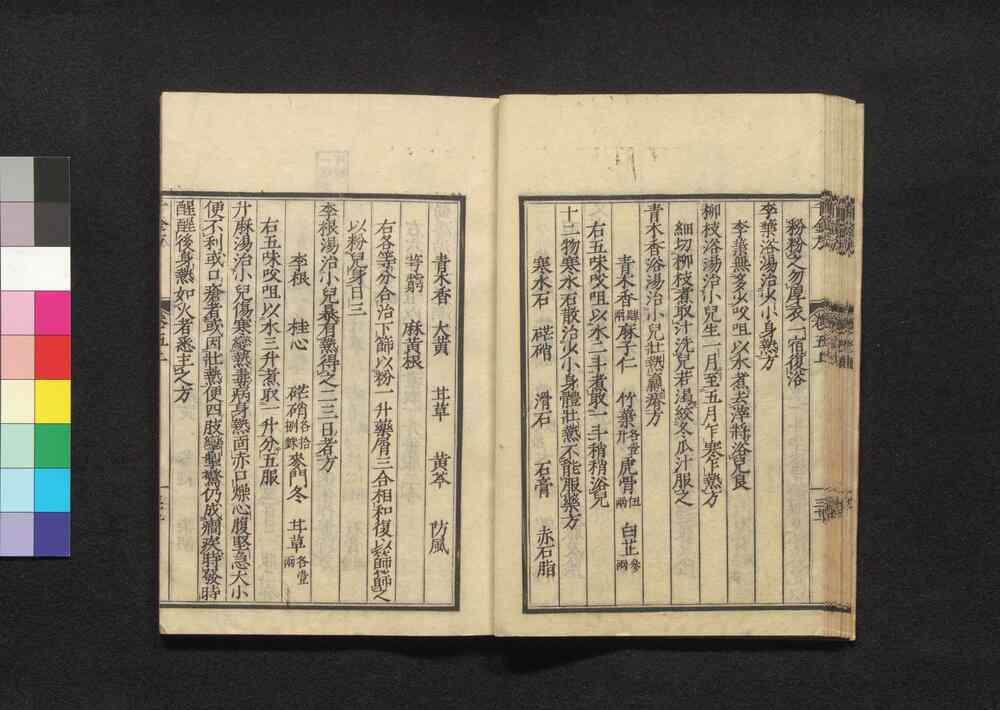 粉粉之勿厚衣一宿復浴
李葉浴湯治少小身熱方
李葉無多少㕮咀以水煮去滓將浴兒良
柳枝浴湯治小兒生一月至五月乍寒乍熱方
細切柳枝煮取汁洗兒若渴絞冬瓜汁服之
青木香浴湯治小兒壯熱羸瘠方
青木香肆兩 麻子仁 竹葉各壹升 虎骨伍兩 白芷參兩
右五味㕮咀以水二斗煮取一斗稍稍浴兒
十二物寒水石散治少小身體壯熱不能服藥方
寒水石 硭硝 滑石 石膏 赤石脂
青木香 大黃 甘草 黃芩 防風
芎藭 麻黃根
右各等分合治下篩以粉一升藥屑三合相和復以篩篩之
以粉兒身日三
李根湯治小兒暴有熱得之二三日者方
李根 桂心 硭硝各拾捌銖 麥門冬 甘草各壹兩
右五味㕮咀以水三升煮取一升分五服
升麻湯治小兒傷寒變熱毒病身熱面赤口燥心腹堅急大小
便不利或口瘡者或因壯熱便四肢攣掣驚仍成癇疾時發時
醒醒後身熱如火者悉主之方